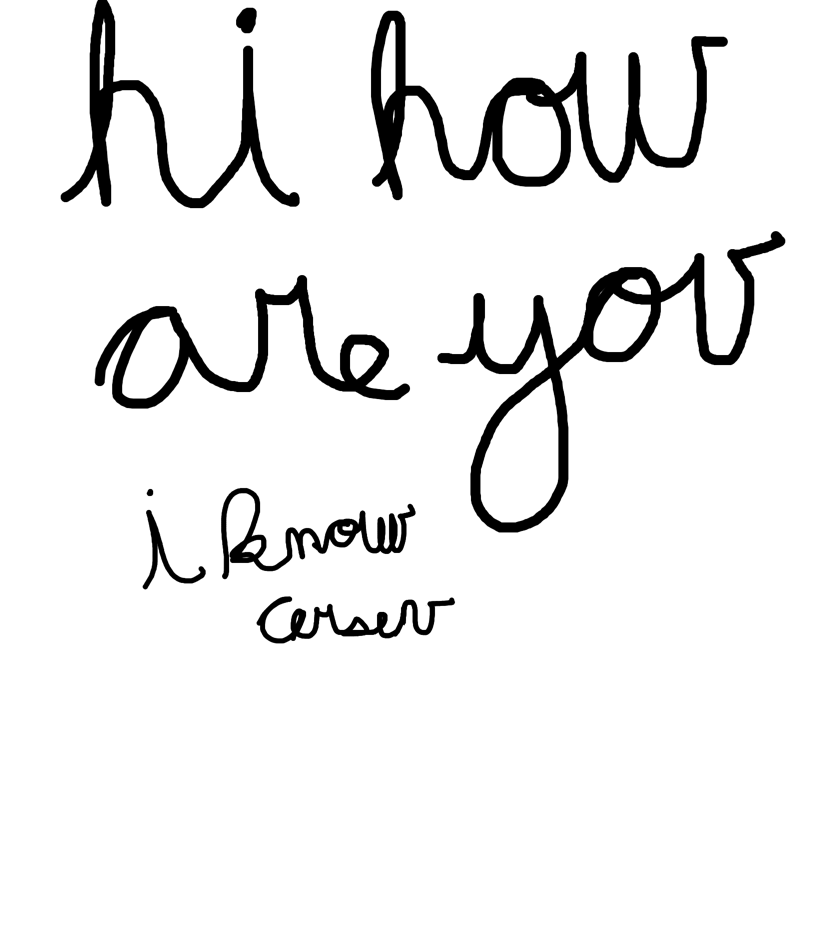 hi how
are you
i know
cerserv